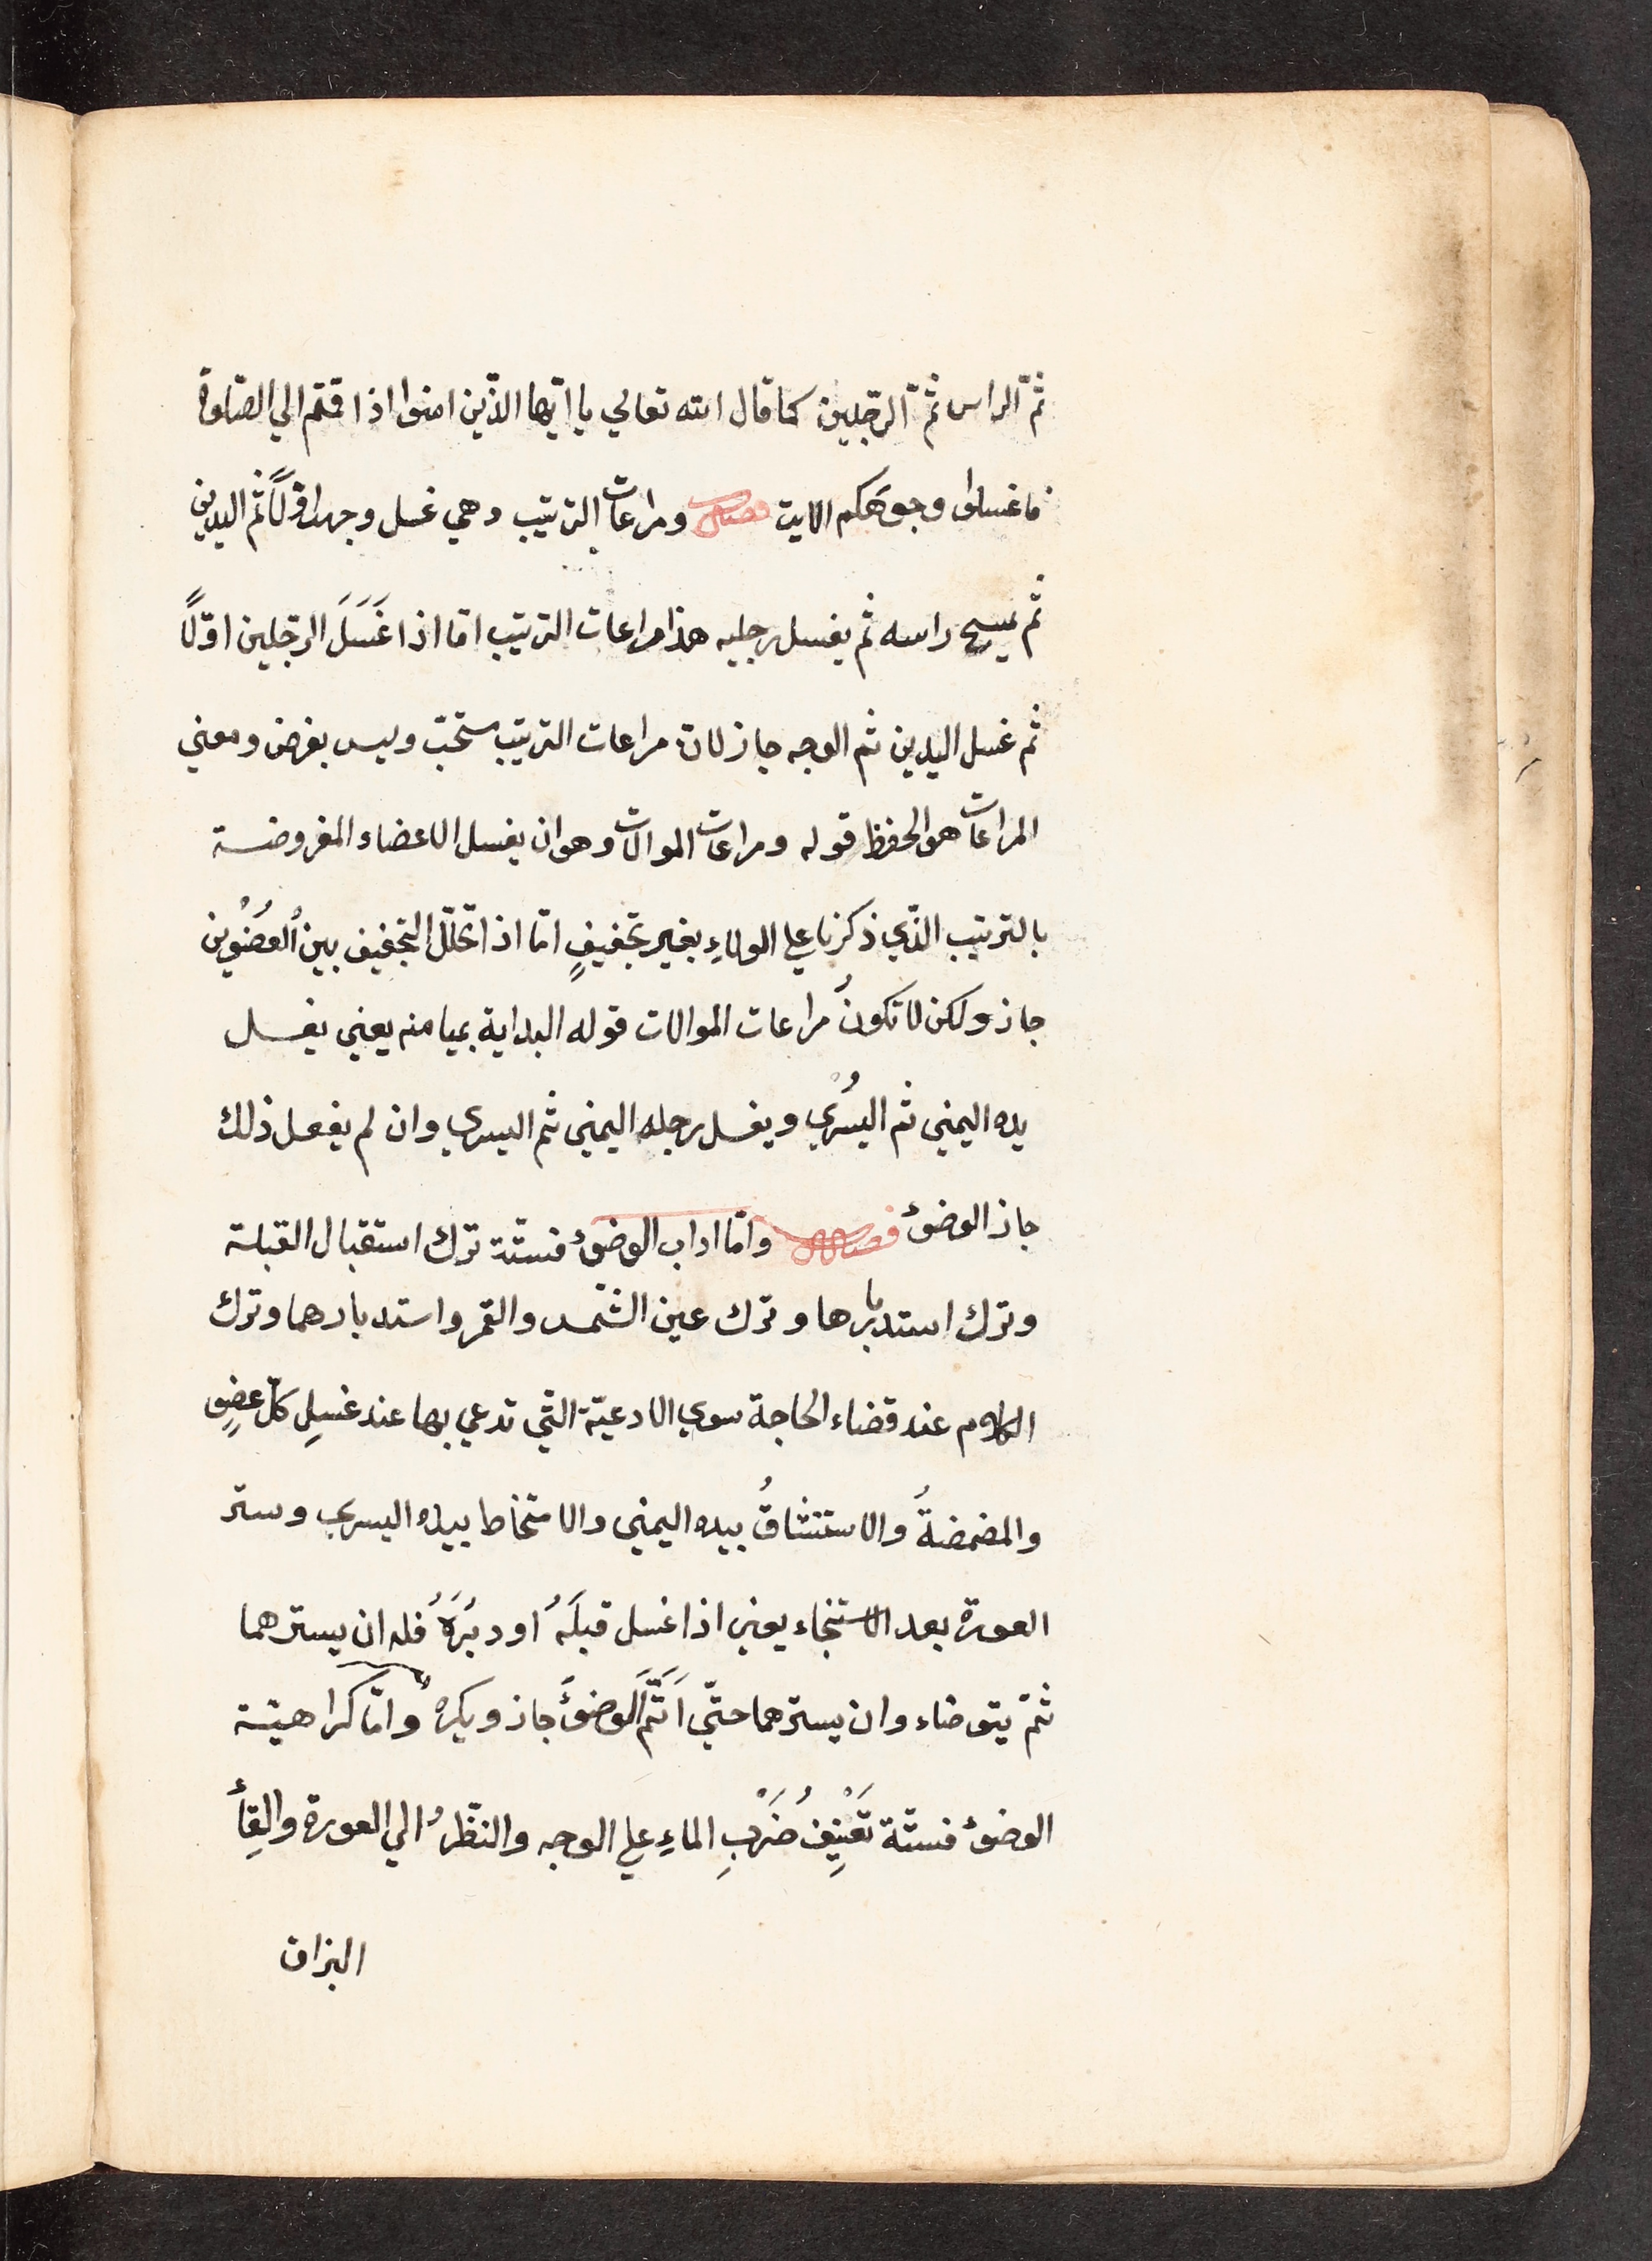 ثمّ الراس ثمّ الرجّلين كما قال الله تعالي يا ايّها الذّين امنوا اذا قتم الي الصّلوة
فاغسلوا وجوهَكم الايت فصل ومراعات الترتيب وهي غسل وجهه اوّلاً ثم اليدين
ثم يمسح راسه ثم يغسل رجليه هذا مراعات الترتيب امّا اذا غَسَلَ الرجّلين اوّلاً
ثم غسل اليدين ثم الوجه جاز لان مراعات الترتيب مستحبّ وليس بفرض ومعني
المراعات هو الحفظ قوله ومراعات الموالات وهو ان يغسل الاعضاء المفروضة
بالترتيب الذّي ذكرنا علي الولاءِ بغير تجفيفٍ امّا اذا تخللّ التجفيف بين العُضُوين
جاز ولكن لا تكونُ مراعات الموالات قوله البداية بميامنه يعني يغسل
يده اليمني ثم اليُسْري ويغسل رجله اليمني ثم اليسري وان لم يفعل ذلك
جاز الوضوء فصل وامّا اداب الوضوء فستّة ترك استقبال القبلة
وترك استدبارها وترك عين الشّمس والقمر واستدبارهما وترك
الكلام عند قضاء الحاجة سوي الادعيّة التّي تدعي بها عند غسلِ كلّ عضوٍ
والمضمضةُ والاستنشاقُ بيده اليمني والامتخاط بيده اليسري وستر
العورة بعد الاستنجاء يعني اذا غسل قبلَهُ او دبُرَهُ فله ان يسترهما
ثمّ يتوضاء وان يسترهما حتيّ اَتَمَّ الوضوءَ جاز ويكره وامّا كراهيّة
الوضوء فستّة تَعْنِيفُ ضَرْبِ الماءِ علي الوجه والنظّرُ الي العورة والقِاءُ
البزاق